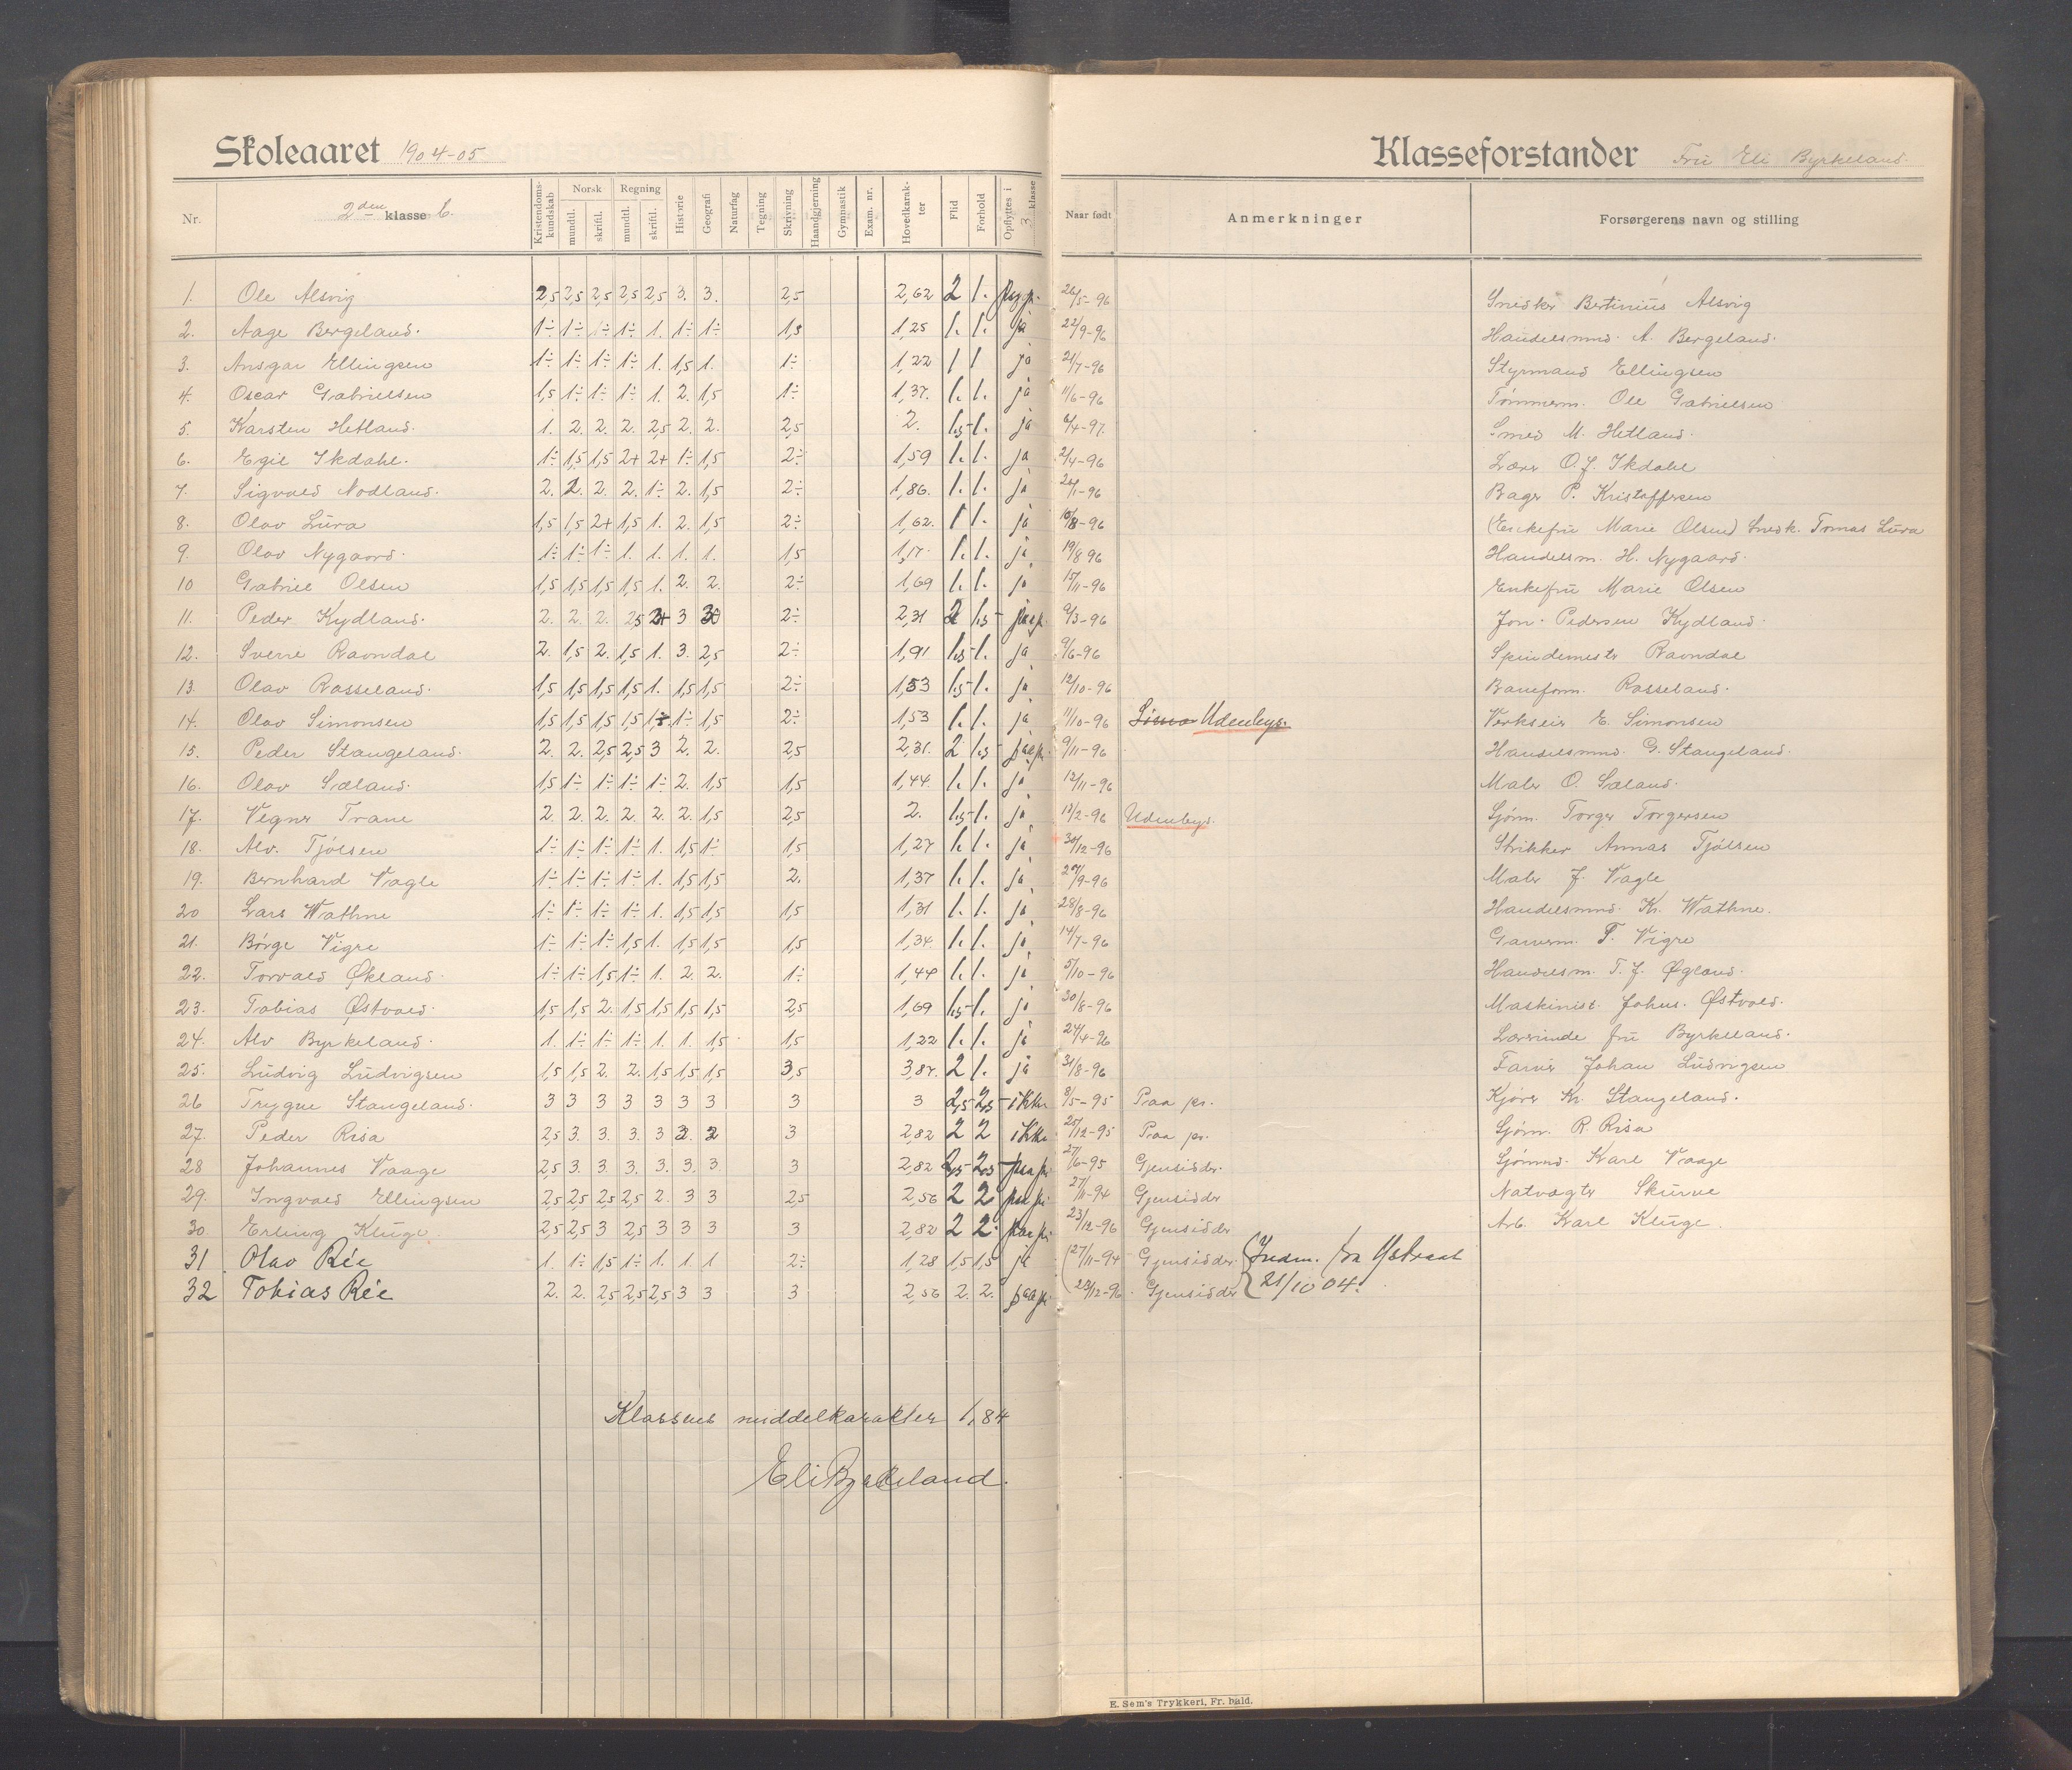 Skoleaaret 1904-05
Klasseforstander Fru Eli Byrkeland.
Nr. 2den klasse C. Kristendomskundskab Norsk mundtl. skriftl. Regning mundtl. skriftl. Historie Geografi Naturfag Tegning Skrivning Haandgjerning Gymnastik Exam. nr. Hovedkarakter Flid Forhold Opflyttes i 3 klasse Naar født Anmerkninger Forsørgerens navn og stilling
1. Ole Alsvig 2,5 2,5 2,5 2,5 2,5 3. 3. 2,5 2,62 2 1. 26/5-96 Snedker Bertinius Alsvig
2. Aage Bergeland. 1÷ 1÷ 1÷ 1÷ 1. 1÷ 1÷ 1,5 1,25 1. 1. ja 22/9-96 Handelsmnd. A. Bergeland.
3. Ansgar Ellingsen 1÷ 1÷ 1÷ 1÷ 1. 1,5 1. 1÷ 1,22 1 1 ja 21/7-96 Styrmand Ellingsen
4. Oscar Gabrielsen 1,5 1÷ 1÷ 1÷ 1. 2. 1,5 1÷ 1,37. 1. 1. ja 11/6-96 Tømmerm. Ole Gabrielsen
5. Karsten Hetland. 1. 2. 2. 2. 2,5 2. 2. 2,5 2. 1,5 1. ja 6/4-97. Smed M. Hetland.
6. Egil Ikdahl. 1÷ 1,5 1,5 2+ 2+ 1÷ 1,5 2÷ 1,59 1. 1. ja 2/4-96 Lærer O. J. Ikdahl
7. Sigvald Nodland. 2. 2. 2. 2. 1÷ 2. 1,5 2÷ 1,86. 1. 1. ja 26/1-96 Bager P. Kristoffersen
8. Olav Lura 1,5 1,5 2+ 1,5 1. 2. 1,5 2÷ 1,62. 1 1. ja 10/8-96 (Enkefru Marie Olsen) Snedk. Tomas Lura
9. Olav Nygaard. 1÷ 1÷ 1÷ 1. 1. 1. 1. 1,5 1,17. 1. 1. ja 19/8 96 Handelsm. H. Nygaard.
10 Gabriel Olsen 1,5 1,5 1,5 1,5 1. 2. 2. 2÷ 1,69 1. 1. ja 15/11-96 Enkefru Marie Olsen
11. Peder Kydland. 2. 2. 2. 2,5 2+ 3 3 2÷ 2,31 2 1,5 paa pr. 9/3-96 Jon. Pedersen Kydland.
12. Sverre Ravndal 2. 1,5 2. 1,5 1. 3. 2,5 2÷ 1,91 1,5 1. ja 9/6-96 Spindemester Ravndal
13. Olav Rosseland. 1,5 1,5 1,5 1,5 1. 1,5 1,5 2÷ 1,53 1,5 1. ja 12/10-96 Baneform. Rosseland.
14. Olav Simonsen 1,5 1,5 1,5 1,5 1÷. 1÷ 1,5 2÷ 1,53 1. 1. ja 11/10-96 Udenbys. Verkseier E. Simonsen
15. Peder Stangeland. 2. 2. 2,5 2,5 3 2. 2. 2,5 2,31. 2 1,5 paa pr. 9/11-96 Handelsmnd. G. Stangeland.
16. Olav Sæland. 1,5 1÷ 1÷ 1÷ 1÷ 2. 1,5 1,5 1,44. 1. 1. ja 12/11-96 Maler O. Sæland.
17. Vegner Trane 2. 2. 2. 2. 2. 2. 1,5 2,5 2. 1,5 1. ja 12/2-96 Udenbys. Sjøm. Torger Torgersen
18. Alv. Tjølsen 1÷ 1÷ 1÷ 1÷ 1. 1,5 1÷ 1,5 1,27 1. 1. ja 30/12-96 Strikker Annas Tjølsen
19. Bernhard Vagle 1÷ 1÷ 1÷ 1÷ 1. 1,5 1,5 2. 1,37 1. 1. ja 29/9-96 Maler J. Vagle
20 Lars Wathne 1÷ 1÷ 1÷ 1÷ 1. 1,5 1,5 1,5 1,31 1. 1. ja 28/8-96 Handelsmnd. K. Wathne.
21. Børge Vigre 1÷ 1÷ 1÷ 1,5 1. 1,5 1,5 1,5 1,34. 1. 1. ja 14/7-96 Garverm. T. Vigre
22. Torvald Økland. 1÷ 1÷ 1,5 1÷ 1. 2. 2. 1÷ 1,44 1. 1. ja 5/10-96 Handelsm. T. J. Øgland.
23. Tobias Østvold. 1,5 1,5 2. 1,5 1,5 1,5 1,5 2,5 1,69 1,5 1. ja 30/8-96 Maskinist. Johns. Østvold.
24. Alv Byrkeland. 1. 1÷ 1÷ 1÷ 1. 1. 1,5 1,5 1,22 1. 1. ja 24/4-96 Lærerinde fru Byrkeland.
25. Ludvig Ludvigsen 1,5 1,5 2. 2. 1,5 1,5 1,5 3,5 3,87. 2 1. ja 31/8-96 Farver Johan Ludvigsen
26 Trygve Stangeland. 3 3 3 3 3 3 3 3 3 2,5 2,5 ikke 8/5-95 Paa pr. Kjører K. Stangeland.
27. Peder Risa 2,5 3. 3. 3. 3 2. 2 3 2,82 2 2 ikke 25/12-95 Paa pr. Sjøm. R. Risa
28 Johannes Vaage 2,5 3. 3. 3. 3. 3. 3 3 2,82 2,5 2,5 paa pr 27/6-95 Gjensidder. Sjømnd. Karl Vaage
29. Ingvald Ellingsen 2,5 2,5 2,5 2,5 2. 3 3 2,5 2,56 2 2 paa pr 27/11-94 Gjensidder Natvægter Skurve
30. Erling Kluge. 2,5 2,5 3 2,5 3 3 3 3 2,82 2 2. paa pr 23/12-96 Gjensidder Arb. Karl Kluge.
31 Olav Rée 1. 1÷ 1,5 1÷ 1. 1. 1 2÷ 1,28 1,5 1,5 ja 27/11-94 Gjensidder. Indm. fra Ystraat
32 Tobias Rée 2. 2. 2,5 2,5 2,5 3 3 3 2,56 2. 2. paa pr 28/12-96. Gjensidder 21/10 04.
Klassens middelkarakter 1,84
Eli Byrkeland.
E. Sem's Trykkeri, Fr. hald.